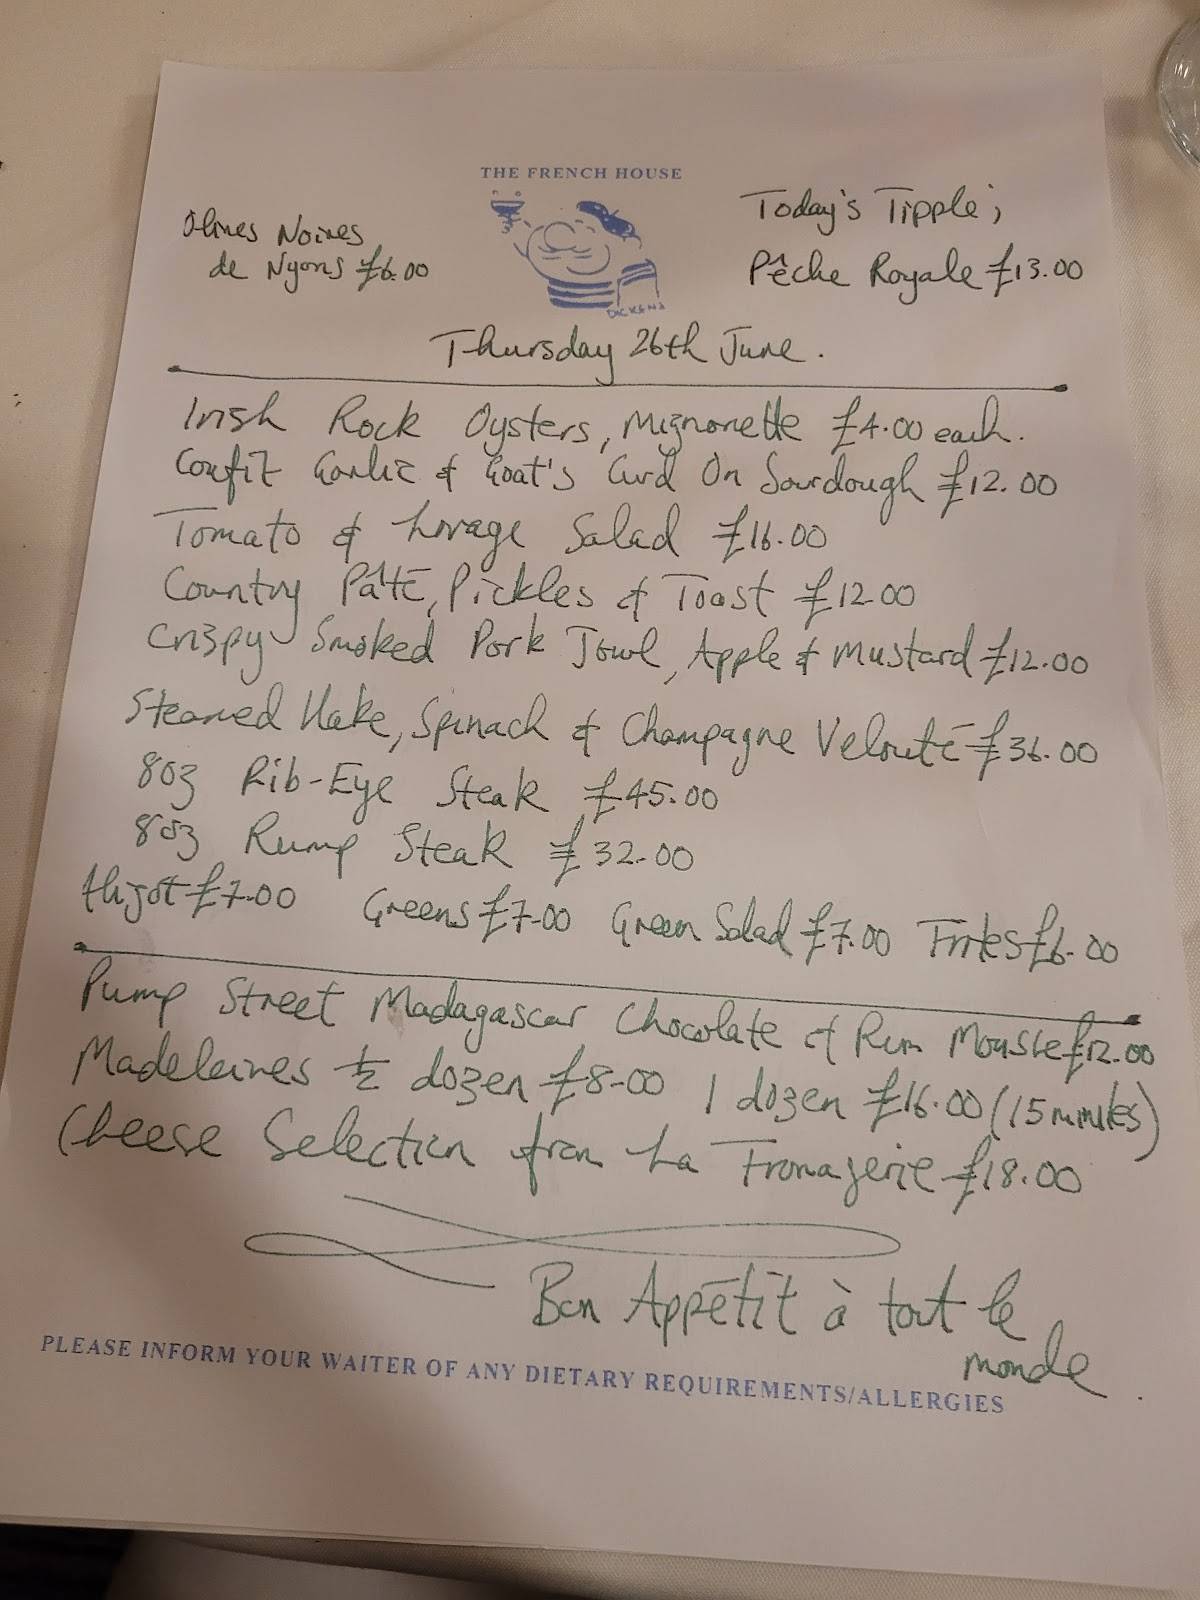 THE FRENCH HOUSE
Olives Noires
de Nyons £6.00
Today's Tipple;
Pêche Royale £13.00
DICKENS
Thursday 26th June.
Irish Rock Oysters, Mignonette £4.00 each.
Confit Garlic & Goat's Curd On Sourdough £12.00
Tomato & Lovage Salad £16.00
Country Pâté, Pickles & Toast £12.00
Crispy Smoked Pork Jowl, Apple & Mustard £12.00
Steamed Hake, Spinach & Champagne Velouté £36.00
8oz Rib-Eye Steak £45.00
8oz Rump Steak £32.00
Aligot £7.00 Greens £7.00 Green Salad £7.00 Frites £6.00
Pump Street Madagascar Chocolate & Rum Mousse £12.00
Madeleines ½ dozen £8.00 1 dozen £16.00 (15 minutes)
Cheese Selection from La Fromagerie £18.00
Bon Appétit à tout le
monde.
PLEASE INFORM YOUR WAITER OF ANY DIETARY REQUIREMENTS/ALLERGIES